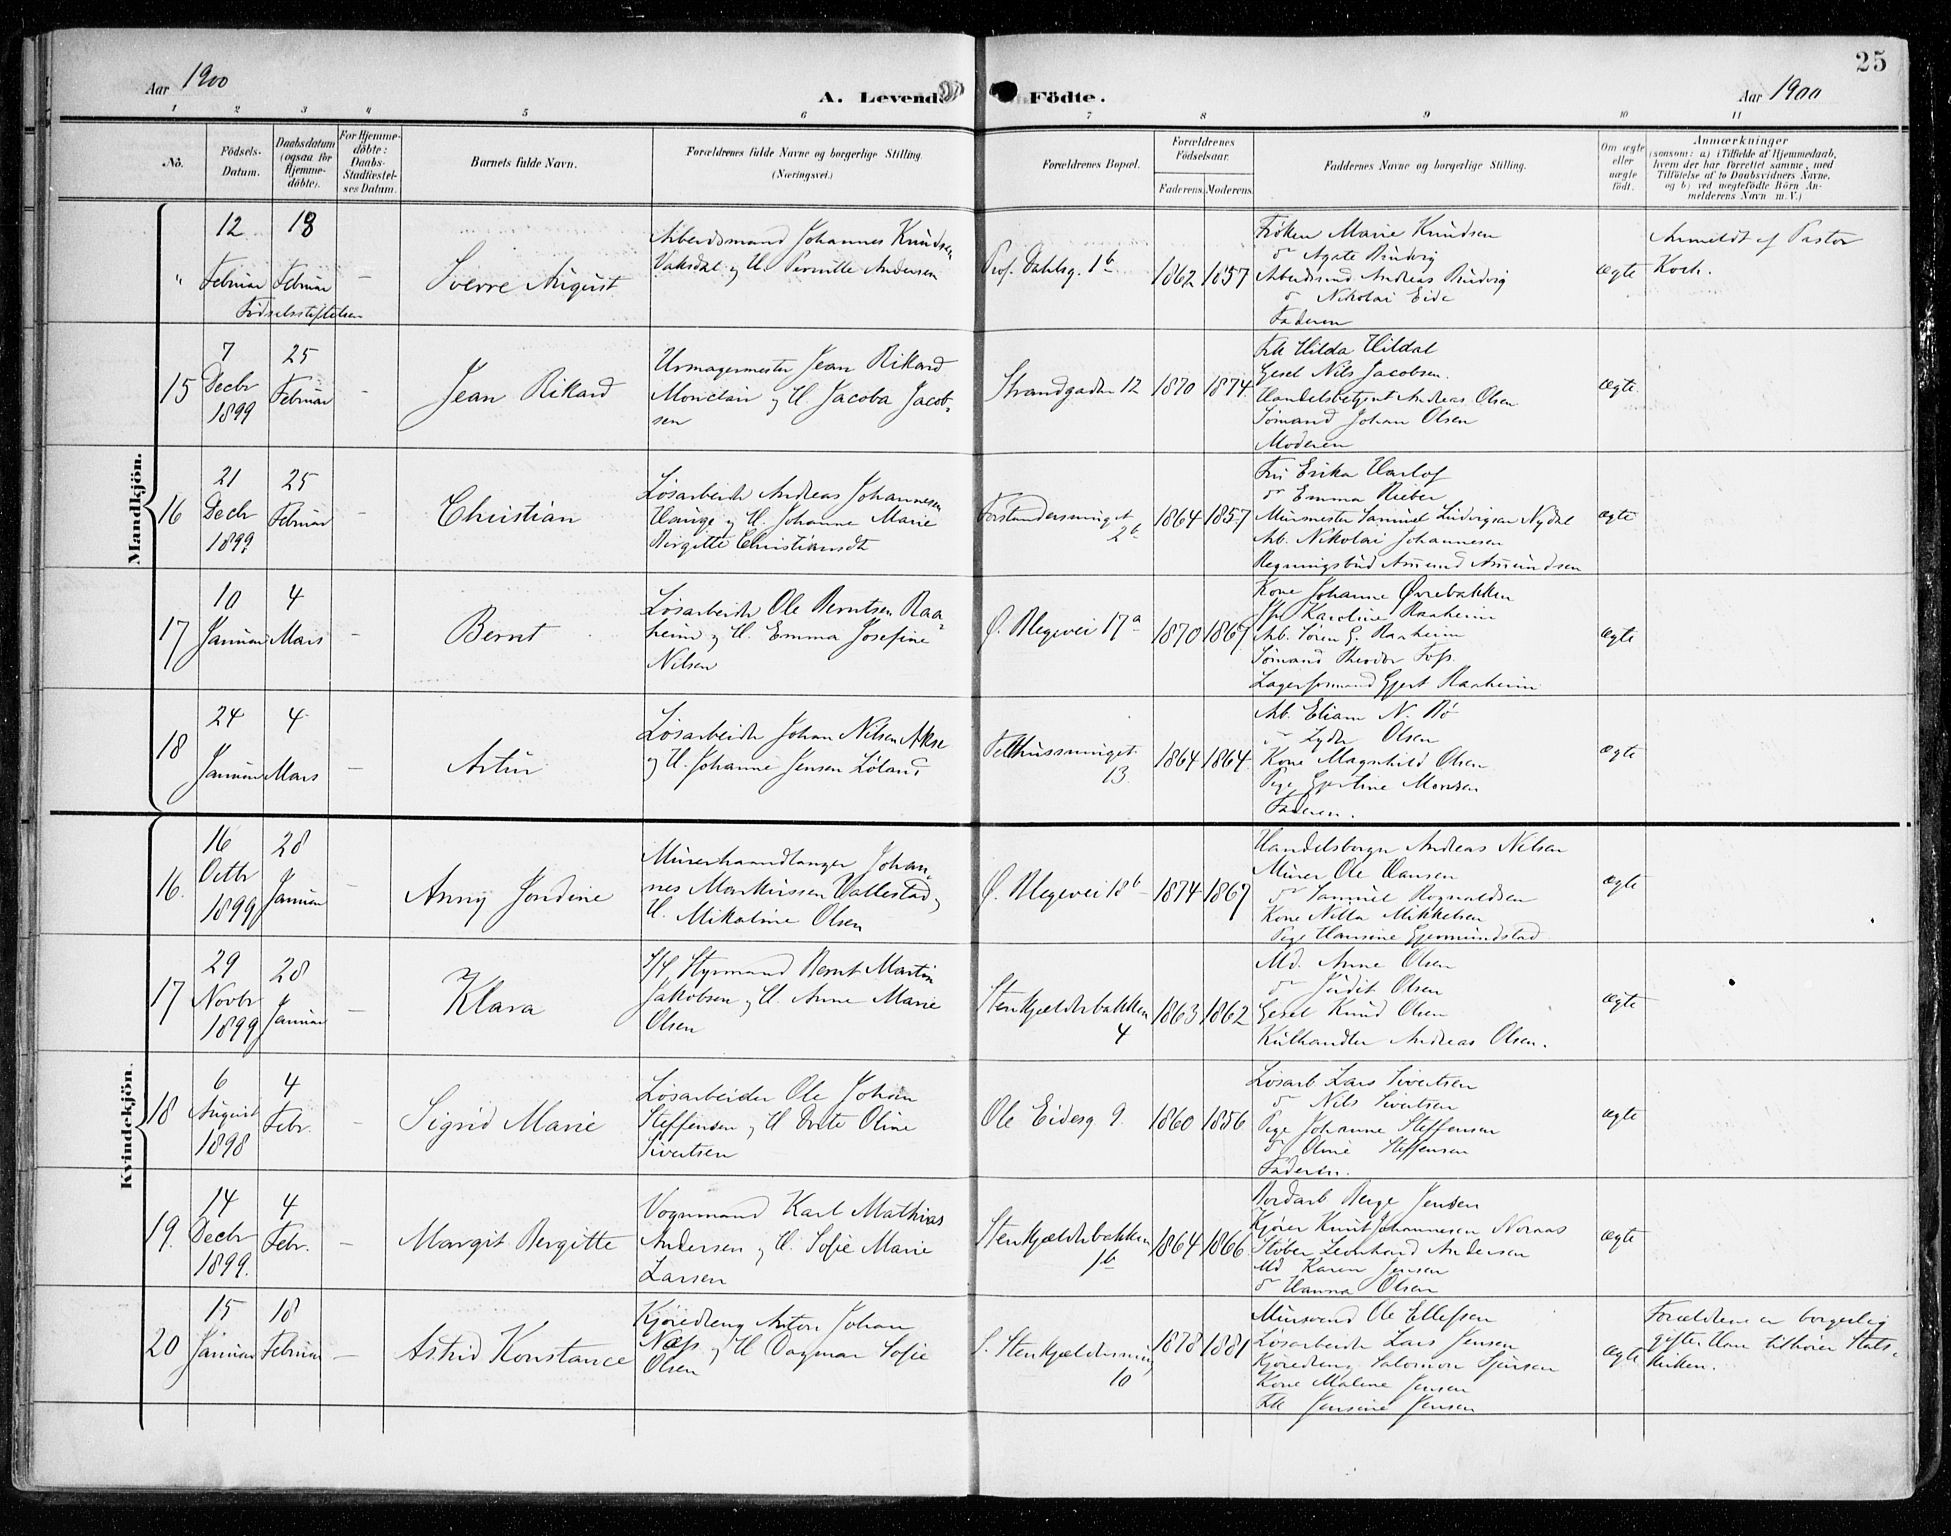 25
Aar 1900
A. Levende Födte.
Aar 1900
1 2 3 4 5 6 7 8 9 10 11
No.
Födsels-
Datum.
Daabsdatum
(ogsaa for
Hjemme-
döbte).
For Hjemme-
döbte:
Daabs-
Stadfæstel-
ses Datum.
Barnets fulde Navn.
Forældrenes fulde Navne og borgerlige Stilling.
(Næringsvei.)
Forældrenes Bopæl.
Forældrenes
Födselsaar.
Faderens. Moderens.
Faddernes Navne og borgerlige Stilling.
Om ægte
eller
uægte
födt.
Anmærkninger
(saasom: a) i Tilfælde af Hjemmedaab,
hvem der har forrettet samme, med
Tilföielse af to Daabsvidners Navne,
og b) ved uægtefödte Börn An-
melderens Navn m. V.)
Mandkjön.
"
12
Februar
18
Februar
Fødselsstiftelsen
—
Sverre August
Arbeidsmand Johannes Knudsen
Vaksdal og H. Pernille Andersen
Prof. Dahlsg. 1b
1862
1857
Frøken Marie Knudsen
do Agate Bindvig
Arbeidsmd Andreas Bindvig
do Nikolai Eide
Faderen
ægte
Anmeldt af Pastor
Koch.
15
7
Decbr
1899
25
Februar
—
Jean Rikard
Urmagermester Jean Rikard
Monclair og H. Jacoba Jacob-
sen
Strandgaden 12
1870
1874.
Frk Hilda Hildal
Gesel Nils Jacobsen.
Handelsbetjent Andreas Olsen
Sømand Johan Olsen
Moderen
ægte
16
21
Decbr
1899
25
Februar
—
Christian
Løsarbeider Andreas Johannesen
Hauge og H. Johanne Marie
Birgitte Christiansdt
Forstandersmuget
2b
1864
1857
Fru Erika Harlof
do Emma Rieber
Murmester Samuel Ludvigsen Nydal
Arb. Nikolai Johannesen
Regningsbud Amund Amundsen
ægte
17
10
Januar
4
Mars
Bernt
Løsarbeider Ole Berntsen Raa-
heim og H. Emma Josefine
Nilsen
Ø. Blegevei 17a
1870
1867
Kone Johanne Øvrebakken
Jfr Karoline Raaheim
Arb. Søren G. Raaheim
Sømand Theodor Foss.
Lagerformand Gjert Raaheim
ægte
18
24
Januar
4
Mars
—
Artur
Løsarbeider Johan Nilsen Akse
og H. Johanne Jensen Løland
Telthussmuget
13.
1864
1864.
Arb. Eliam N. Bø
do Lyder Olsen
Kone Magnhild Olsen
Pige Gjertine Monsen
Faderen.
ægte
Kvindekjön.
16.
16
Octbr
1899
28
Januar
—
Anny Jondine
Murerhaandlanger Johan-
nes Markussen Vallestad og
H. Mikaline Olsen
Ø. Blegevei 18b
1874
1867
Handelsborger Andreas Nilsen
Murer Ole Hansen
do Samuel Rognaldsen
Kone Nilla Mikkelsen
Pige Hansine Gjermundstad
ægte
17
29
Novbr
1899
28
Januar
—
Klara
Styrmand Bernt Martin
Jakobsen og H. Anne Marie
Olsen
Stenkjælderbakken
4
1863
1862
Md. Anne Olsen
do Judit Olsen
Gesel Knud Olsen
Kulhandler Andreas Olsen.
ægte
18
6
August
1898
4
Febr.
—
Sigrid Marie
Løsarbeider Ole Johan
Steffensen og H Dorte Oline
Sivertsen
Ole Eidesg 9.
1860
1856
Løsarb Lars Sivertsen
do Nils Sivertsen
Pige Johanne Steffensen
do Oline Steffensen
Faderen.
ægte
19.
14
Decbr
1899.
4
Febr.
—
Margit Bergitte
Vognmand Karl Mathias
Andersen og H. Sofie Marie
Larsen
Stenkjælderbakken
1b
1864
1866
Bordarb Berge Jensen
Kjører Knut Johannesen Noraas
Støber Leonhard Andersen
Md Karen Jensen
do Hanna Olsen
ægte
20
15
Januar
18
Februar
—
Astrid Konstance
Kjøredreng Anton Johan
Næss og H Dagmar Sofie
Olsen
S. Stenkjældersmug
10
1878
1881
Mursvend Ole Ellefsen
Løsarbeider Lars Jensen
Kjøredreng Salomon Sjursen
Kone Malene Jensen
Frk Jensine Jensen
ægte
Forældrene er borgerlig
gifte. Hun tilhører Stats-
kirken.